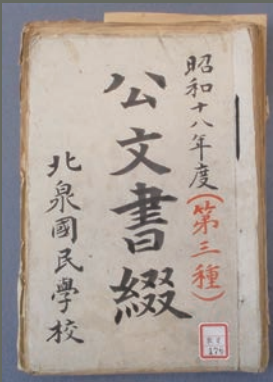 昭和十八年度(第三種)
公文書綴
北泉國民學校